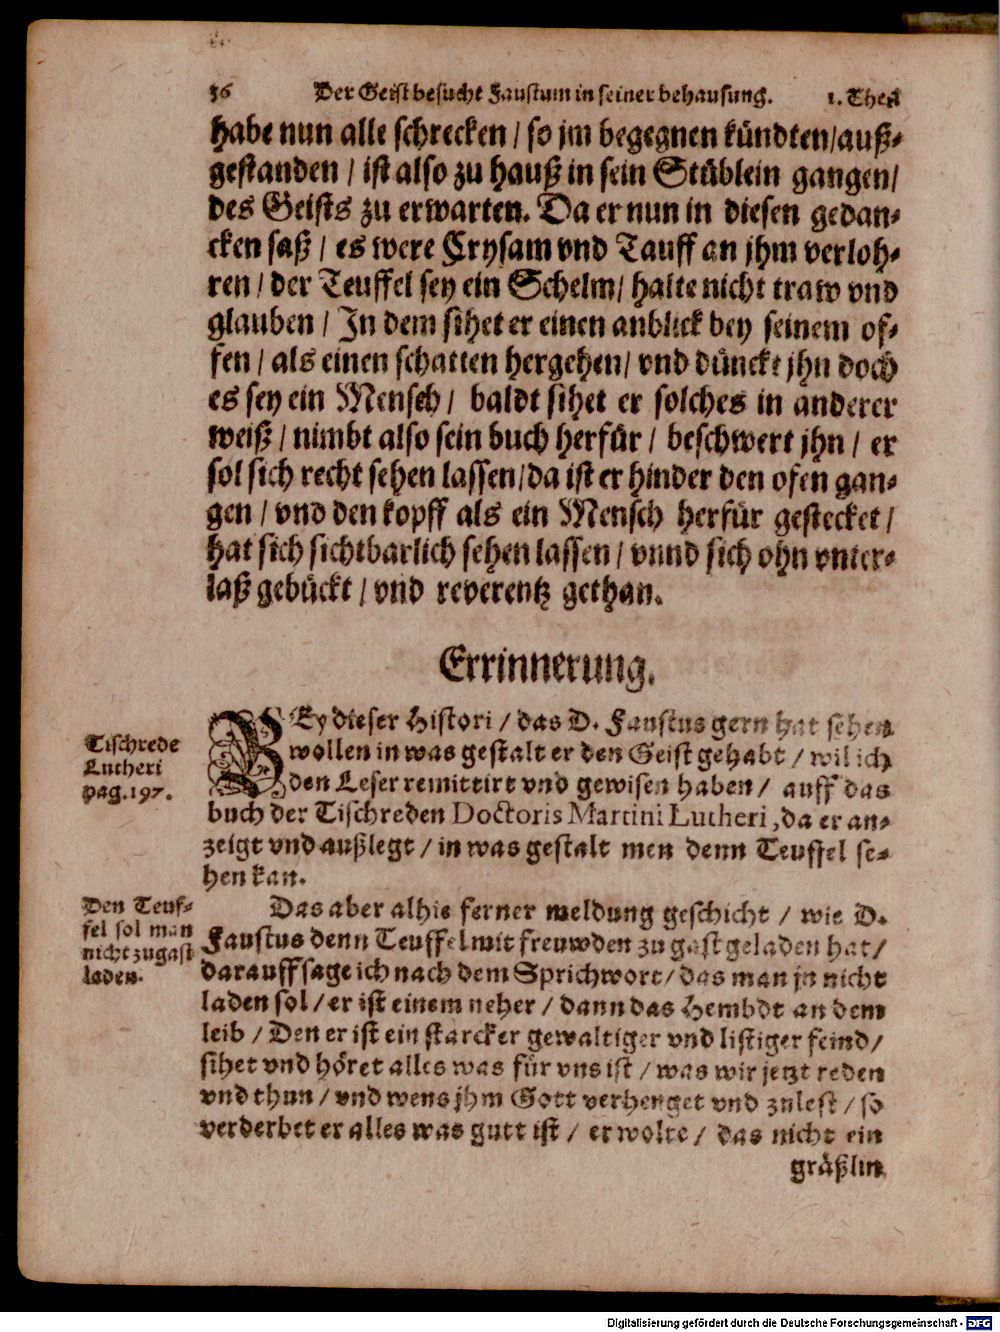 36 Der Geist besucht Faustum in seiner behausung. 1. Theil
habe nun alle schrecken / so jm begegnen kündten/auß-
gestanden / ist also zu hauß in sein Stüblein gangen/
des Geists zu erwarten. Da er nun in diesen gedan-
cken saß / es were Crysam vnd Tauff an jhm verloh-
ren / der Teuffel sey ein Schelm/ halte nicht traw vnd
glauben / In dem sihet er einen anblick bey seinem of-
fen / als einen schatten hergehen/ vnd dünckt jhn doch
es sey ein Mensch / baldt sihet er solches in anderer
weiß / nimbt also sein buch herfür / beschwert jhn / er
sol sich recht sehen lassen/da ist er hinder den ofen gan-
gen / vnd den kopff als ein Mensch herfür gestecket /
hat sich sichtbarlich sehen lassen / vnnd sich ohn vnter-
laß gebückt / vnd reverentz gethan.
Errinnerung.
BEy dieser Histori / das D. Faustus gern hat sehen
wollen in was gestalt er den Geist gehabt / wil ich
den Leser remittirt vnd gewisen haben / auff das
buch der Tischreden Doctoris Martini Lutheri, da er an-
zeigt vnd außlegt / in was gestalt men denn Teuffel se-
hen kan.
Tischrede
Lutheri
pag. 197.
Das aber alhie ferner meldung geschicht / wie D.
Faustus denn Teuffel mit freuwden zu gast geladen hat/
darauff sage ich nach dem Sprichwort/ das man jn nicht
laden sol / er ist einem neher / dann das Hembdt an dem
leib / Den er ist ein starcker gewaltiger vnd listiger feind /
sihet vnd höret alles was für vns ist / was wir jetzt reden
vnd thun / vnd wens jhm Gott verhenget vnd zulest / so
verderbet er alles was gutt ist / er wolte / das nicht ein
gräßlin
Den Teuf-
fel sol man
nicht zu gast
laden.
Digitalisierung gefördert durch die Deutsche Forschungsgemeinschaft - DFG